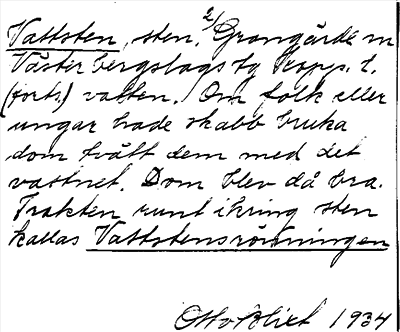 Vattsten, sten. 2/ Grangärde sn
Västerbergslags tg Kopp. l.
(forts.) vatten. Om folk eller
ungar hade skabb bruka
dom tvått dem med det
vattnet. Dom blev då bra.
Trakten runt ikring sten
kallas Vattstensrönningen
Otto Blixt 1934